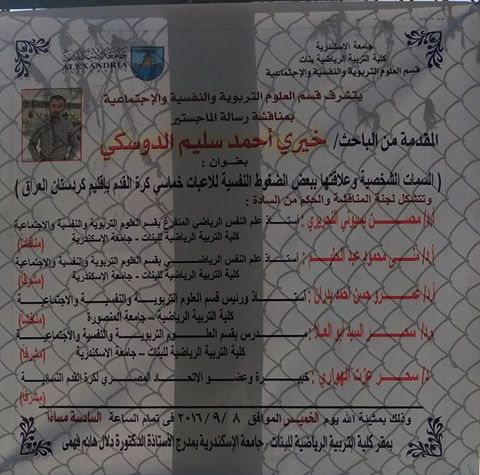 جامعة الاسكندرية
كلية التربية الرياضية بنات
قسم العلوم التربوية والنفسية والاجتماعية
جامعة الاسكندرية
ALEXANDRIA
يتشرف قسم العلوم التربوية والنفسية والإجتماعية
بمناقشة رسالة الماجستير
المقدمة من الباحث/ خيري أحمد سليم الدوسكي
بعنوان :
( السمات الشخصية وعلاقتها ببعض الضغوط النفسية للاعبات خماسي كرة القدم بإقليم كردستان العراق )
وتتشكل لجنة المناقشة والحكم من السادة :
أ.د/ محمد بسيوني النحريري : أستاذ علم النفس الرياضي المتفرغ بقسم العلوم التربوية والنفسية والاجتماعية
كلية التربية الرياضية للبنات - جامعة الاسكندرية (مناقشا)
أ.د/ منى محمود عبد الحليم : أستاذ علم النفس الرياضي بقسم العلوم التربوية والنفسية والاجتماعية
كلية التربية الرياضية للبنات - جامعة الاسكندرية (مشرفا)
أ.د/ عمرو حسن احمد بدران : أستاذ ورئيس قسم العلوم التربوية والنفسية والاجتماعية
كلية التربية الرياضية - جامعة المنصورة (مناقشا)
م.د/ سحر السيد ابو العلا : مدرس بقسم العلوم التربوية والنفسية والاجتماعية
كلية التربية الرياضية للبنات - جامعة الاسكندرية (مشرفا)
د/ سحر عزت الهواري : خبيرة وعضو الاتحاد المصري لكرة القدم النسائية
(مشرفا)
وذلك بمشيئة الله يوم الخميس الموافق ٨ / ٩ / ٢٠١٦ فى تمام الساعة السادسة مساءا
بمقر كلية التربية الرياضية للبنات - جامعة الإسكندرية بمدرج الأستاذة الدكتورة دلال هانم فهمى